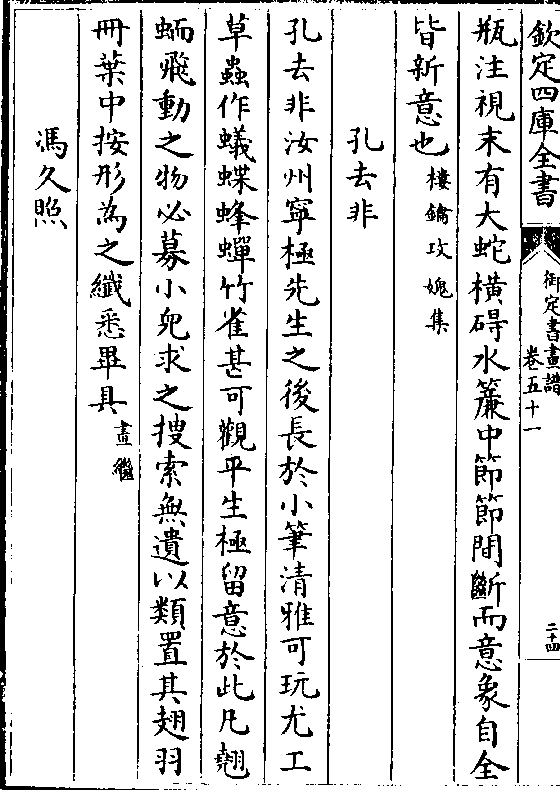 欽定四庫全書
御定書畫譜
卷五十一
二十四
瓶注視末有大蛇橫碍水簾中節節間斷而意象自全
皆新意也樓鑰攻媿集
孔去非
孔去非汝州寧極先生之後長於小筆清雅可玩尤工
草蟲作蟻蝶蜂蟬竹雀甚可觀平生極留意於此凡翹
蛕飛動之物必募小兒求之搜索無遺以類置其翅羽
冊葉中按形為之纖悉畢具畫繼
馮久照